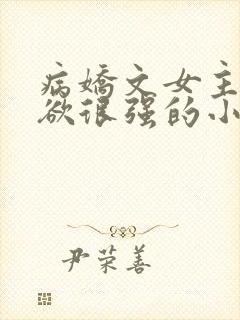 病嬌文女主
欲很强的小
尹荣善